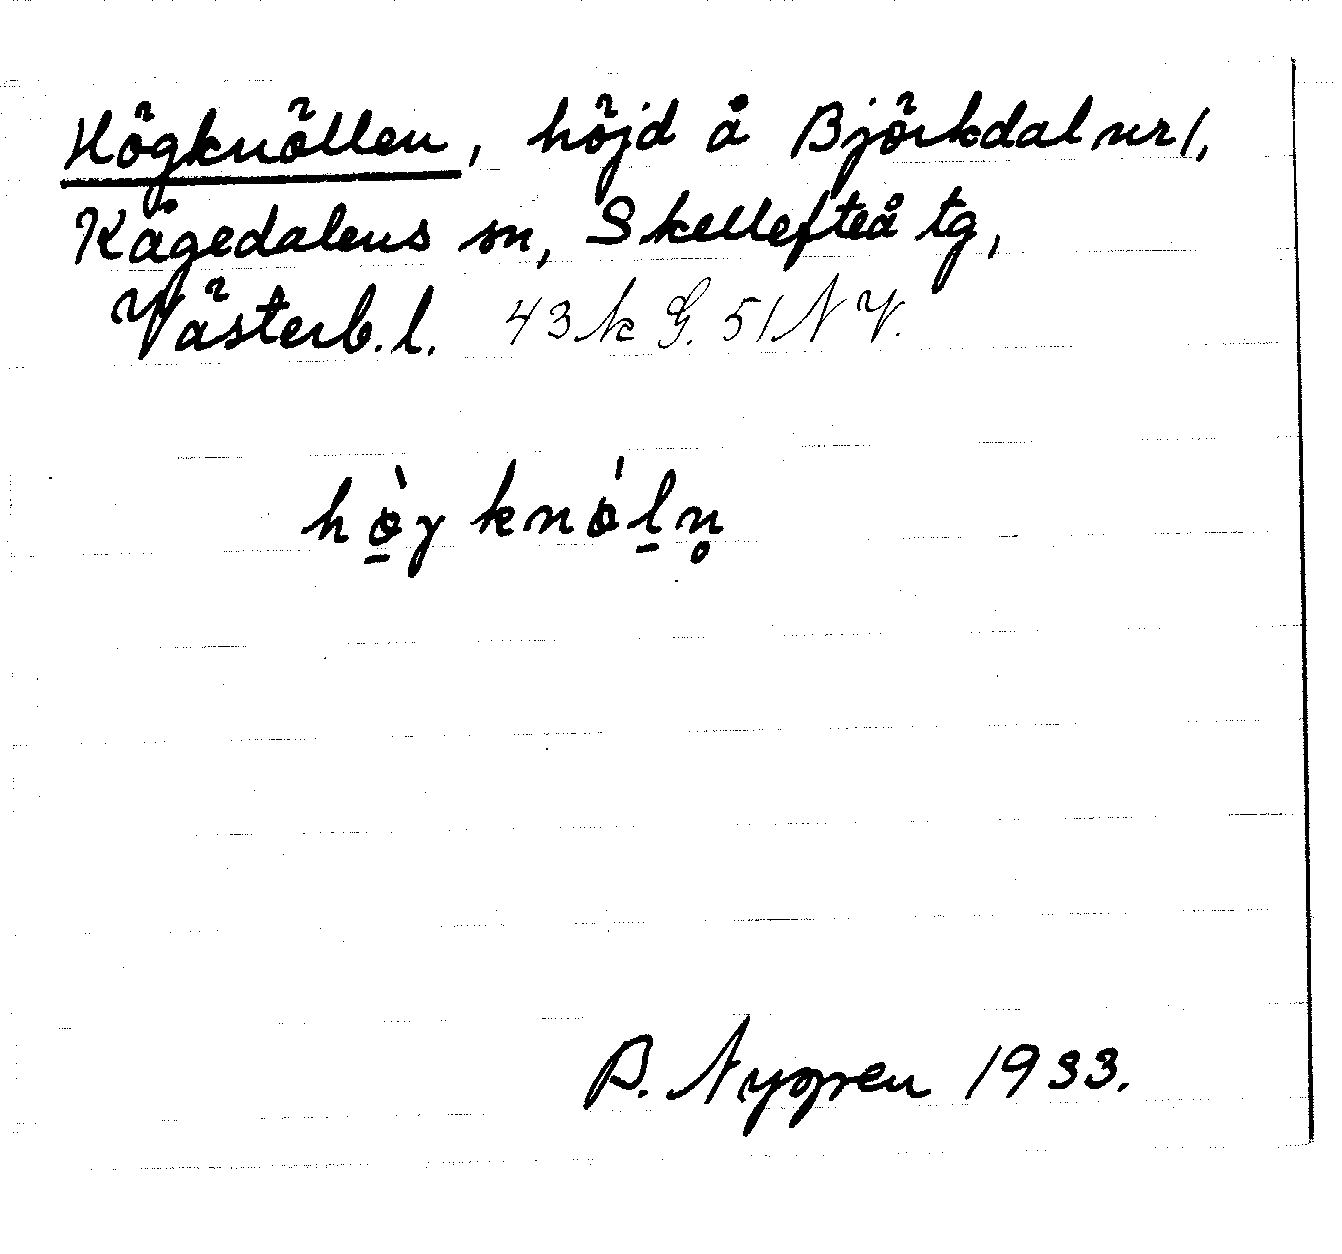 Högknöllen, höjd å Björkdal nr 1,
Kågedalens sn, Skellefteå tg,
Västerb. l. 43 k G. 51 N V.
hø̱̀γ knǿḻn̥
B. Nygren 1933.